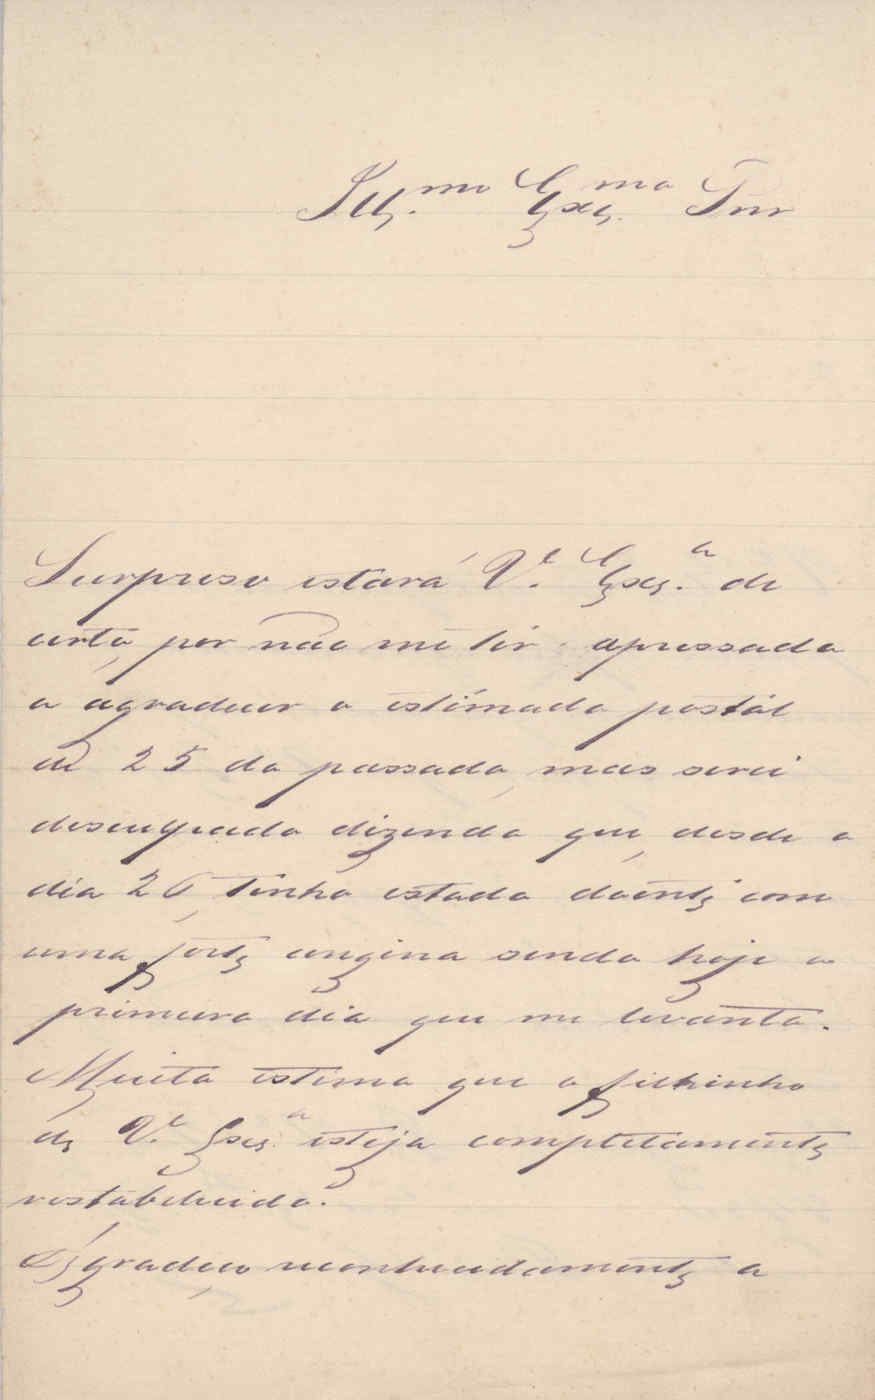 Ill.mo Exc.mo Snr
Surpreso estará V.e Exc.a de
certo, por não me ter apressado
a agradecer o estimado postal
de 25 do passado, mas serei
desculpado dizendo que, desde o
dia 26, tenho estado doente com
uma forte angina sendo hoje o
primeiro dia que me levanto.
Muito estimo que o filhinho
de V.e Exc.a esteja completamente
restabelecido.
Agradeço reconhecidamente a